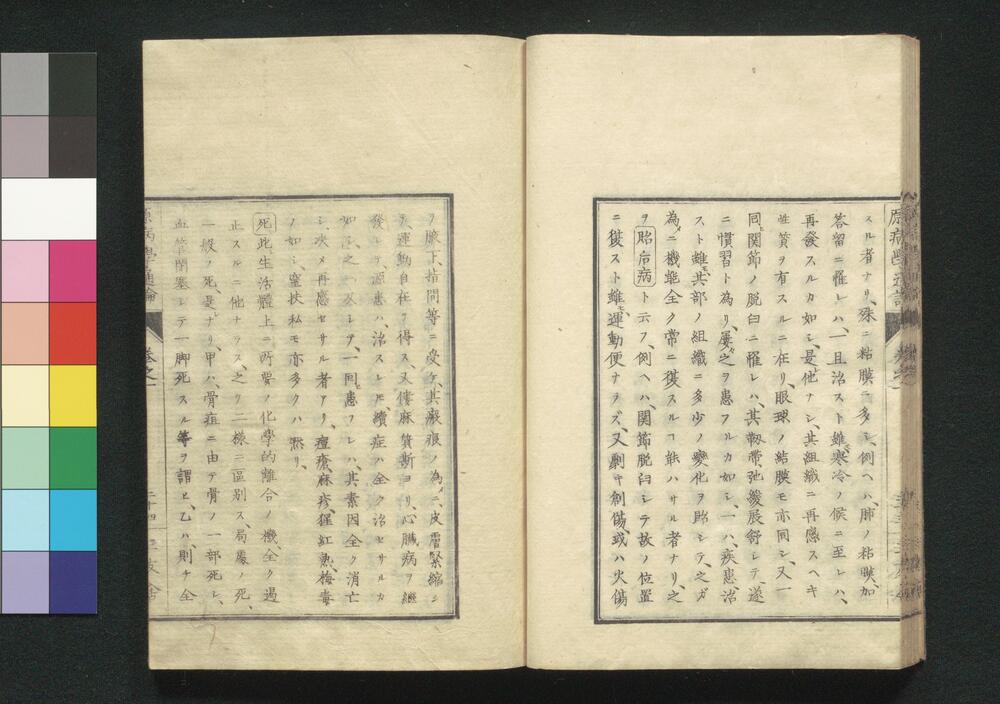 スル者ナリ、殊ニ粘膜ニ多シ、例ヘハ、肺ノ粘膜、加
答留ニ罹レハ、一旦治スト雖モ、寒冷ノ候ニ至レハ、
再發スルカ如シ、是レ他ナシ、其組織ニ再感スヘキ
性質ヲ有スルニ在リ、眼球ノ結膜モ亦同シ、又一
同關節ノ脱臼ニ罹レハ、其靱帶弛緩展舒シテ、遂
ニ慣習ト為リ、屢々之ヲ患フルカ如シ、一ハ、疾患治
スト雖モ其部ノ組織ニ多少ノ變化ヲ貽シテ、之ガ
為メニ機能全ク常ニ復スルヿ能ハサル者ナリ、之
ヲ貽后病ト云フ、例ヘハ、關節脱臼シテ故ノ位置
ニ復スト雖モ、運動便ナラズ、又劇キ創傷、或ハ火傷
ヲ腋下、指間等ニ受ケ、其瘢痕ノ為メニ皮膚緊縮シ
テ運動自在ヲ得ス、又僂麻質斯ヨリ、心臓病ヲ繼
發シテ、源患ハ、治スレ𪜈、續症ハ全ク治セサルカ
如シ、之ニ反シテ、一回患フレハ、其素因全ク消亡
シ、决メ再感セサル者アリ、痘瘡、麻疹、猩紅熱、梅毒
ノ如シ、窒扶私モ亦多クハ然リ、
死此、生活體上ニ所要ノ化學的離合ノ機、全ク遏
止スルニ他ナラス、之ヲ二様ニ區別ス、局處ノ死、
一般ノ死、是レナリ、甲ハ、骨疽ニ由テ骨ノ一部死シ、
血管閉塞シテ一脚死スル等ヲ謂ヒ、乙ハ、則チ全
原病學通論
卷之一